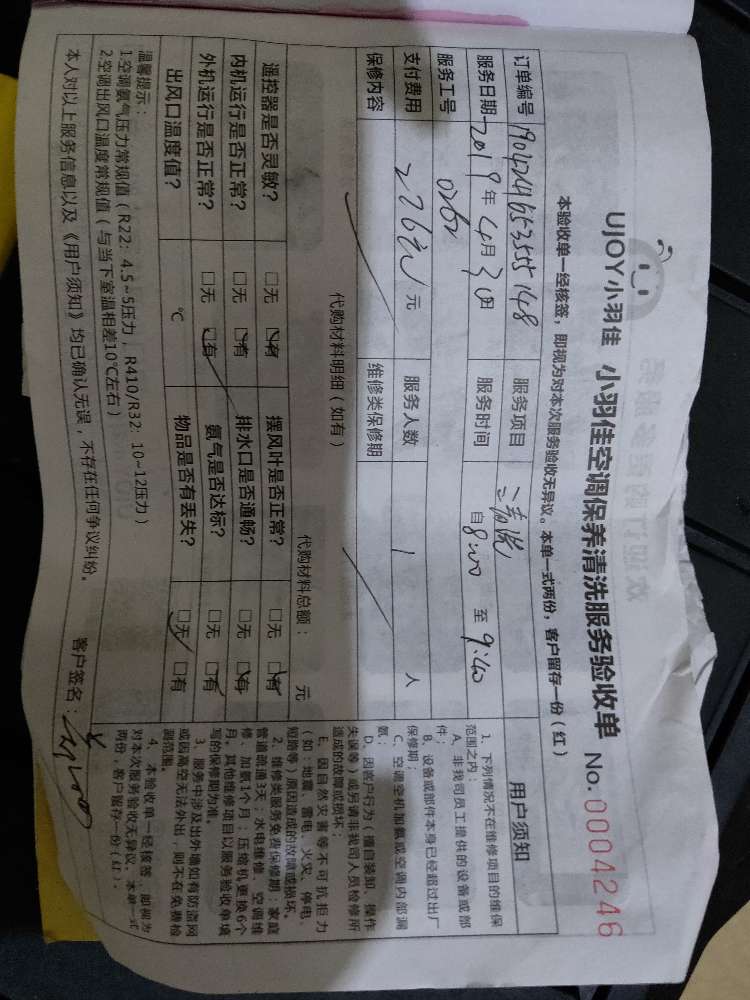 UJOY小羽佳 小羽佳空调保养清洗服务验收单 No.0004246
本验收单一经核签，即视为对本次服务验收无异议。本单一式两份，客户留存一份（红）
订单编号 服务项目 清洗
服务日期 2019年4月30日 服务时间 自8:00 至 9:40
服务工号 0262
支付费用 276元 元 服务人数 1 人
保修内容 维修类保修期
代购材料明细（如有） 代购材料总额： 元
遥控器是否灵敏？ □无 □有 摆风叶是否正常？ □无 □有
内机运行是否正常？ □无 □有 排水口是否通畅？ □无 □有
外机运行是否正常？ □无 □有 氨气是否达标？ □无 □有
出风口温度值？ ℃ 物品是否有丢失？ □无 □有
温馨提示：
1.空调氨气压力常规值（R22：4.5~5压力，R410/R32：10~12压力）
2.空调出风口温度常规值（与当下室温相差10℃左右）
本人对以上服务信息以及《用户须知》均已确认无误，不存在任何争议纠纷。
客户签名：
用户须知
1、下列情况不在维修项目的维保
范围之内：
A、非我司员工提供的设备或部
件；
B、设备或部件本身已经超过出厂
保修期；
C、空调空机加氨或空调内部漏
氨；
D、因客户行为（擅自装卸、操作
失误等）或另请非我司人员检修所
造成的故障或损坏；
E、因自然灾害等不可抗拒力
（如：地震、雷电、火灾、停电、
短路等）原因造成的故障或损坏。
2、维修类服务免费保修期：家庭
管道疏通3天；水电维修、空调维
修、加氨1个月；压缩机更换6个
月。其他维修项目以服务验收单填
写的保修期为准。
3、服务中涉及出外墙如有防盗网
或因高空无法外出，则不在免费检
测范围。
4、本验收单一经核签，即视为
对本次服务验收无异议，本单一式
两份，客户留存一份（红）。